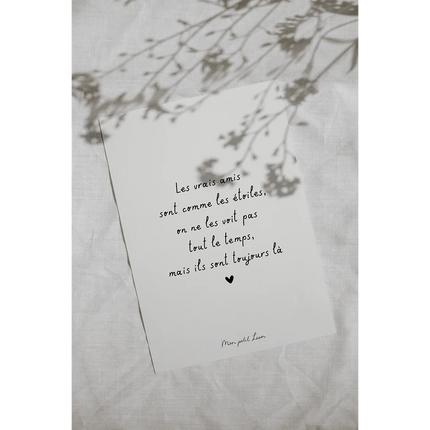 Les vrais amis
sont comme les étoiles,
on ne les voit pas
tout le temps,
mais ils sont toujours là
Mon petit Léon